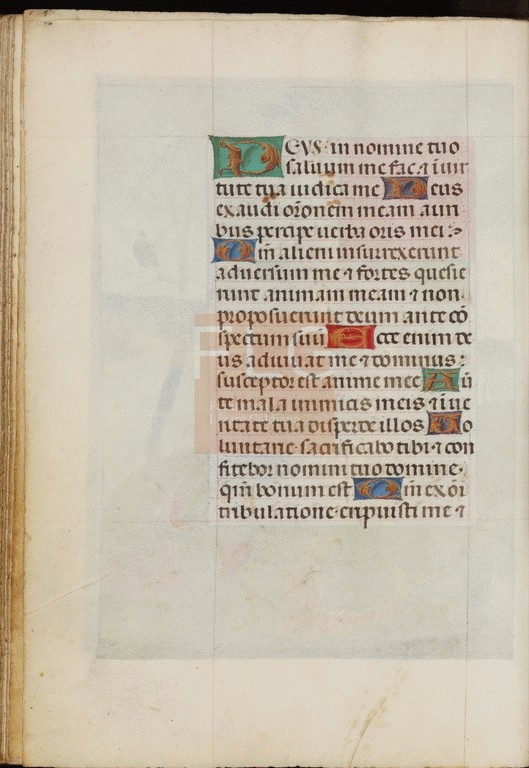 DEVS in nomine tuo
saluum me fac ⁊ in uir
tute tua iudica me Deus
exaudi orōnem meam auri
bus percipe uerba oris mei
Qm̄ alieni insurrexerunt
aduersum me ⁊ fortes quesie
runt animam meam ⁊ non
proposuerunt deum ante cō
spectum suū Ecce enim de
us adiuuat me ⁊ dominus
susceptor est anime mee Auū
te mala inimicis meis ⁊ in ue
ritate tua disperde illos Uo
luntarie sacrificabo tibi ⁊ con
fitebor nomini tuo domine
qm̄ bonum est Qm̄ ex oī
tribulatione eripuisti me ⁊